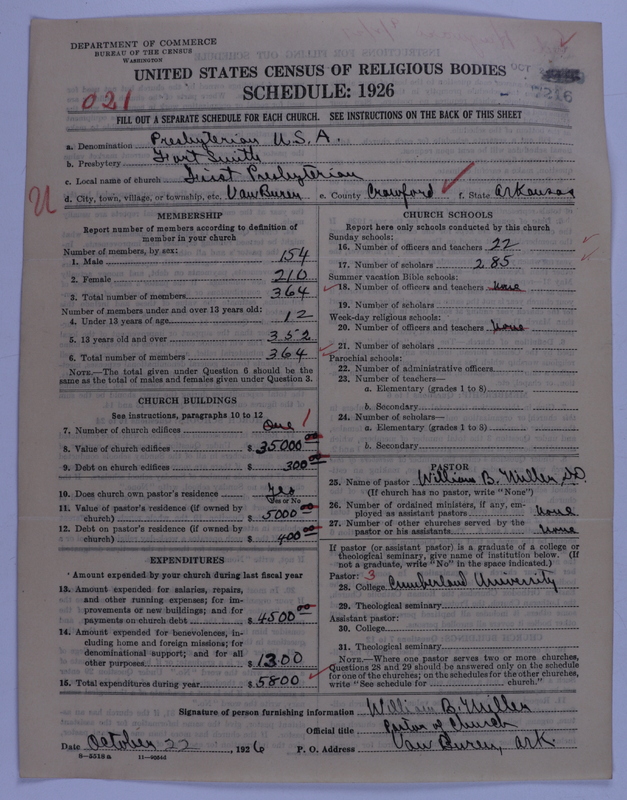 DEPARTMENT OF COMMERCE
BUREAU OF THE CENSUS
WASHINGTON
UNITED STATES CENSUS OF RELIGIOUS BODIES
SCHEDULE: 1926
021
FILL OUT A SEPARATE SCHEDULE FOR EACH CHURCH. SEE INSTRUCTIONS ON THE BACK OF THIS SHEET
a. Denomination Presbyterian U.S.A.
b. Presbytery Fort Smith
c. Local name of church First Presbyterian
d. City, town, village, or township, etc. Van Buren e. County Crawford f. State Arkansas
U
MEMBERSHIP
Report number of members according to definition of
member in your church
Number of members, by sex:
1. Male 154
2. Female 210
3. Total number of members 364
Number of members under and over 13 years old:
4. Under 13 years of age 12
5. 13 years old and over 352
6. Total number of members 364
NOTE.—The total given under Question 6 should be the
same as the total of males and females given under Question 3.
CHURCH BUILDINGS
See instructions, paragraphs 10 to 12
7. Number of church edifices One 1
8. Value of church edifices $ 35000 00
9. Debt on church edifices $ 300 00
10. Does church own pastor's residence Yes
Yes or No
11. Value of pastor's residence (if owned by
church) $ 5000 00
12. Debt on pastor's residence (if owned by
church) $ 400 00
EXPENDITURES
Amount expended by your church during last fiscal year
13. Amount expended for salaries, repairs,
and other running expenses; for im-
provements or new buildings; and for
payments on church debt $ 4500 00
14. Amount expended for benevolences, in-
cluding home and foreign missions; for
denominational support; and for all
other purposes $ 1300
15. Total expenditures during year $ 5800
CHURCH SCHOOLS
Report here only schools conducted by this church
Sunday schools:
16. Number of officers and teachers 22
17. Number of scholars 285
Summer vacation Bible schools:
18. Number of officers and teachers None
19. Number of scholars
Week-day religious schools:
20. Number of officers and teachers None
21. Number of scholars
Parochial schools:
22. Number of administrative officers
23. Number of teachers—
a. Elementary (grades 1 to 8)
b. Secondary
24. Number of scholars—
a. Elementary (grades 1 to 8)
b. Secondary
PASTOR
25. Name of pastor William B. Miller, D.D.
(If church has no pastor, write "None")
26. Number of ordained ministers, if any, em-
ployed as assistant pastors None
27. Number of other churches served by the
pastor or his assistants None
If pastor (or assistant pastor) is a graduate of a college or
theological seminary, give name of institution below. (If
not a graduate, write "No" in the space indicated.)
Pastor: 3
28. College Cumberland University
29. Theological seminary
Assistant pastor:
30. College
31. Theological seminary
NOTE.—Where one pastor serves two or more churches,
Questions 28 and 29 should be answered only on the schedule
for one of the churches; on the schedules for the other churches,
write "See schedule for church."
Signature of person furnishing information William B. Miller
Official title Pastor of Church
Date October 22, 1926 P. O. Address Van Buren, Ark.
8—5518a 11—9554d